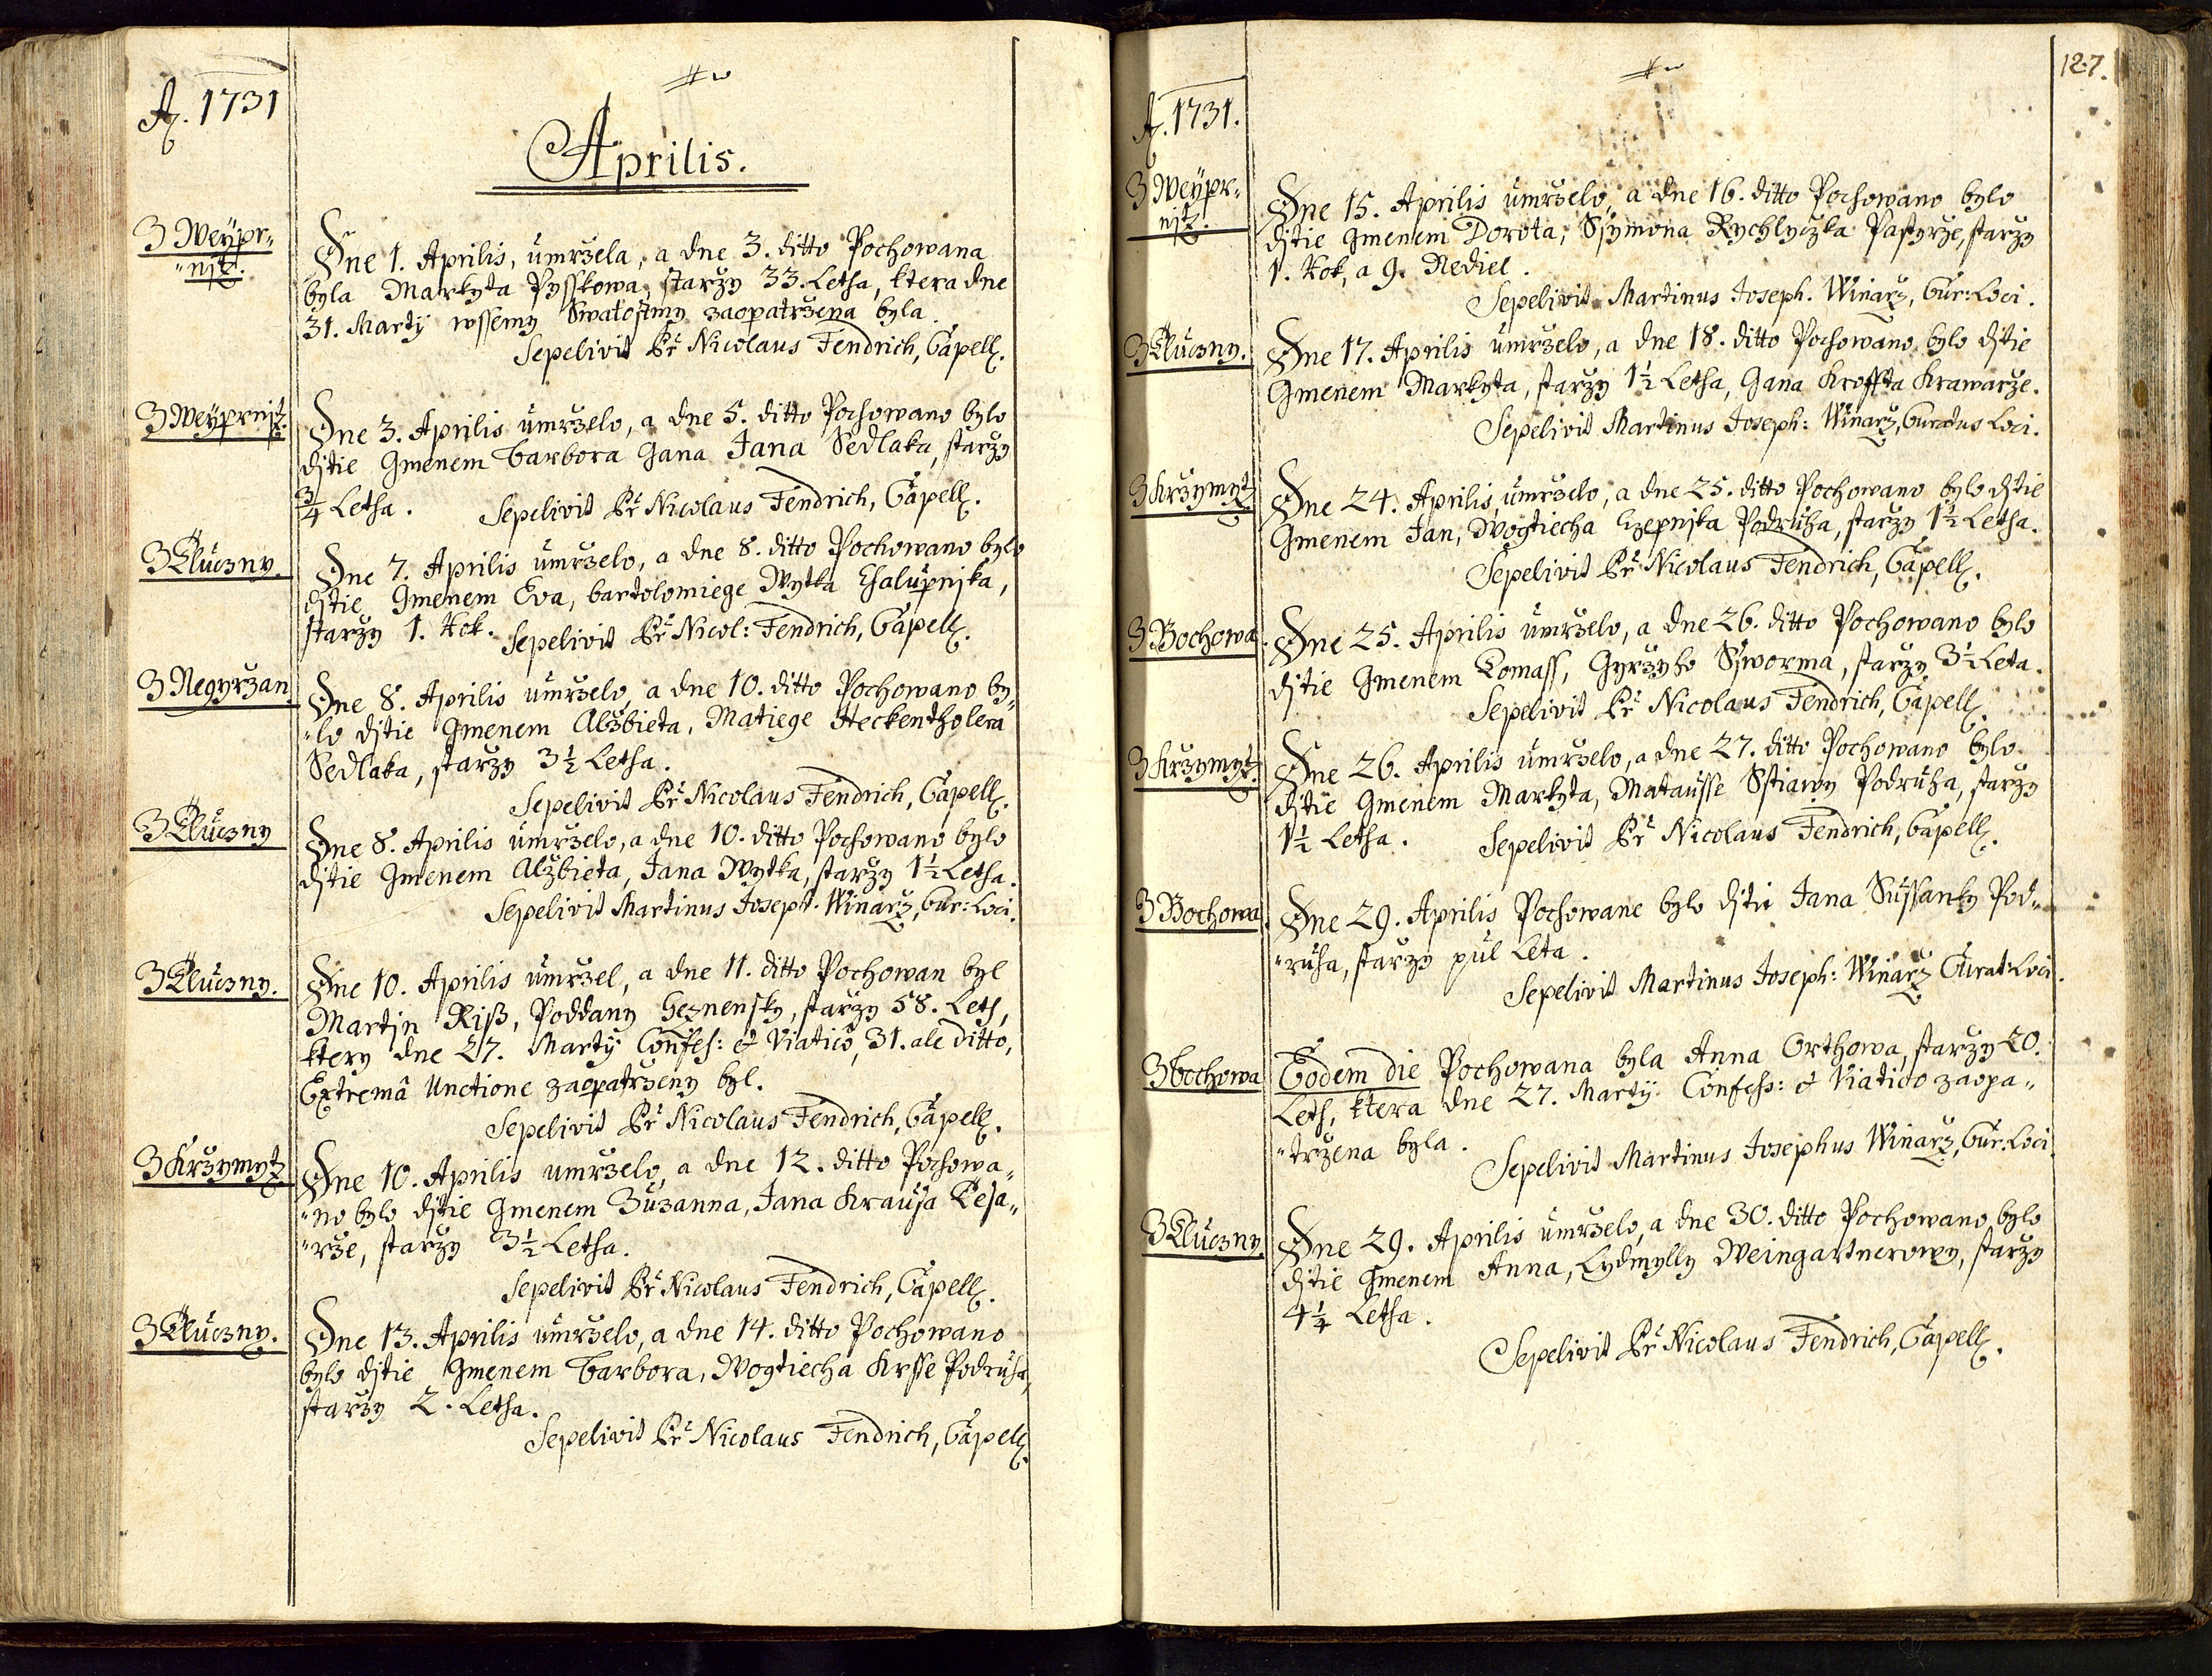 A. 1731
Aprilis.
Z Weÿpr„
„njtz.
Dne 1. Aprilis, umrzela, a dne 3. ditto Pochowana
byla Markyta Pysskowa, starzy 33. Letha, ktera dne
31. Martÿ wssemy Swatostmy zaopatrzena byla.
Sepelivit Pr Nicolaus Fendrich, Capell.
Z Weÿprnjtz.
Dne 3. Aprilis umrzelo, a dne 5. ditto Pochowano bylo
djtie Gmenem Barbora Gana Jana Sedlaka, starzy
3/4 Letha. Sepelivit Pr Nicolaus Fendrich, Capell.
Z Kluczny.
Dne 7. Aprilis umrzelo, a dne 8. ditto Pochowano bylo
djtie Gmenem Eva, bartolomiege Wytka Chalupnjka,
starzy 1. Rok. Sepelivit Pr Nicol: Fendrich, Capell.
Z Negyrzan
Dne 8. Aprilis umrzelo, a dne 10. ditto Pochowano by„
„lo djtie Gmenem Alžbieta, Matiege Heckentholera
Sedlaka, starzy 3½ Letha.
Sepelivit Pr Nicolaus Fendrich, Capell.
Z Kluczny
Dne 8. Aprilis umrzelo, a dne 10. ditto Pochowano bylo
djtie Gmenem Alžbieta, Jana Wytka, starzy 1½ Letha.
Sepelivit Martinus Joseph. Winarz, Cur: Loci.
Z Kluczny.
Dne 10. Aprilis umrzel, a dne 11. ditto Pochowan byl
Martjn Riß, Poddany Geznensky, starzy 58. Leth,
ktery dne 27. Martÿ Confes: et Viatico, 31. ale ditto,
Extremâ Unctione zaopatrzeny byl.
Sepelivit Pr Nicolaus Fendrich, Capell.
Z Krzymytz
Dne 10. Aprilis umrzelo, a dne 12. ditto Pochowa„
„no bylo djtie Gmenem Zuzanna, Jana Krausa Tesa„
„rze, starzy 3½ Letha.
Sepelivit Pr Nicolaus Fendrich, Capell.
Z Kluczny.
Dne 13. Aprilis umrzelo, a dne 14. ditto Pochowano
bylo djtie Gmenem Barbora, Wogtiecha Krsse Podruha,
starzy 2. Letha.
Sepelivit Pr Nicolaus Fendrich, Capell.
127.
A. 1731.
Z Weÿpr„
njtz.
Dne 15. Aprilis umrzelo, a dne 16. ditto Pochowano bylo
djtie Gmenem Dorota, Ssymona Rychlyczka Pastyrze, starzy
1. Rok, a 9. Nediel.
Sepelivit Martinus Joseph. Winarz, Cur: Loci.
Z Kluczny.
Dne 17. Aprilis umrzelo, a dne 18. ditto Pochowano bylo djtie
Gmenem Markyta, starzy 1½ Letha, Gana Kroffta Krawarze.
Sepelivit Martinus Joseph: Winarz, Curatus Loci.
Z Krzymytz
Dne 24. Aprilis umrzelo, a dne 25. ditto Pochowano bylo djtie
Gmenem Jan, Wogtiecha Czepnjka Podruha, starzy 1½ Letha.
Sepelivit Pr Nicolaus Fendrich, Capell.
Z Bochowa.
Dne 25. Aprilis umrzelo, a dne 26. ditto Pochowano bylo
djtie Gmenem Tomass, Gyrzyho Ssworma, starzy 3½ Leta.
Sepelivit Pr Nicolaus Fendrich, Capell.
Z Krzymytz.
Dne 26. Aprilis umrzelo, a dne 27. ditto Pochowano bylo
djtie Gmenem Markyta, Matausse Sstiawy Podruha, starzy
1½ Letha. Sepelivit Pr Nicolaus Fendrich, Capell.
Z Bochowa.
Dne 29. Aprilis Pochowane bylo djtie Jana Sussanky Pod„
„ruha, starzy pul Leta.
Sepelivit Martinus Joseph: Winarz Curat: Loci.
Z bochowa
Eodem die Pochowana byla Anna Orthowa, starzy 20.
Leth, ktera dne 27. Martÿ Confess: et Viatico zaopa„
„trzena byla.
Sepelivit Martinus Josephus Winarz, Cur: Loci.
Z Kluczny
Dne 29. Aprilis umrzelo, a dne 30. ditto Pochowano bylo
djtie Gmenem Anna, Lydmylly Weingartnerowy, starzy
4¼ Letha.
Sepelivit Pr Nicolaus Fendrich, Capell.